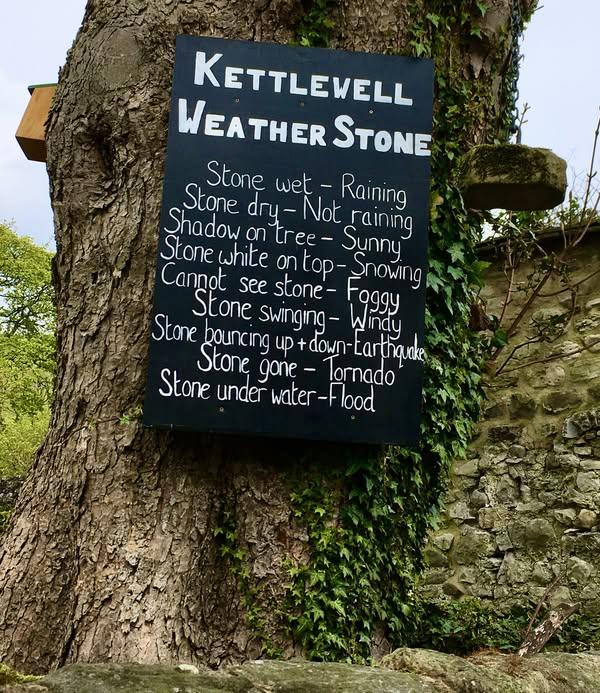 KETTLEWELL
WEATHER STONE
Stone wet – Raining
Stone dry – Not raining
Shadow on tree – Sunny
Stone white on top – Snowing
Cannot see stone – Foggy
Stone swinging – Windy
Stone bouncing up + down – Earthquake
Stone gone – Tornado
Stone under water – Flood